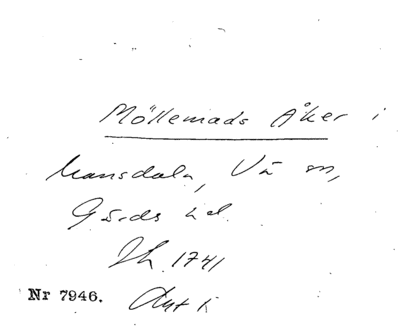 Möllemads Åker i
Mansdala, Vä sn,
Gärds hd.
Jh. 1741
Nr 7946. Avt 1